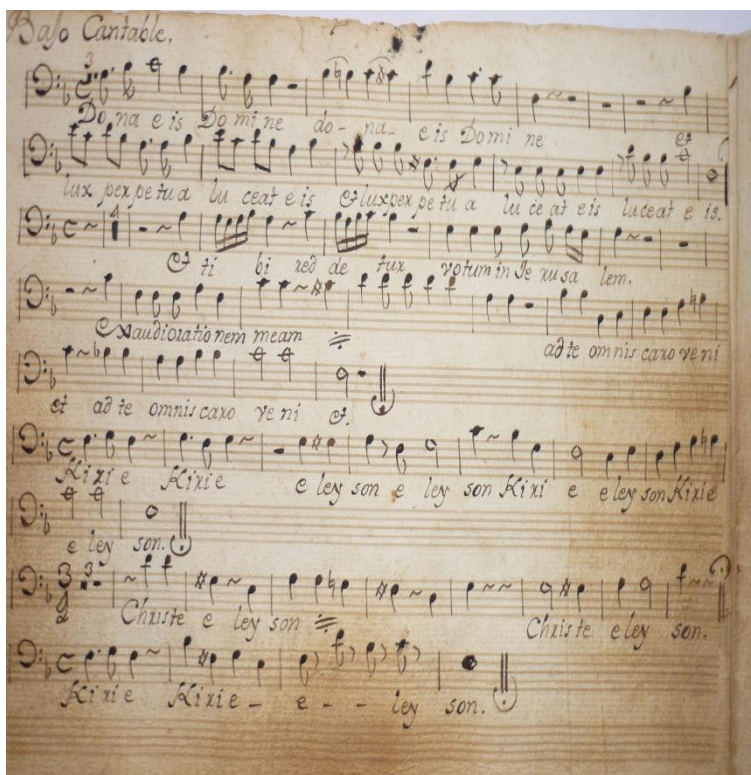 Baſo Cantable.
Do na e is Do mi ne do - na - e is Domi ne et
lux perpetua lu ceat e is et lux per pe tu a lu ce at e is luceat e is.
4
et ti bi red de tur votum in Je rusa lem.
Exaudi orationem meam ad te omnis caro veni
et ad te omnis caro ve ni et.
Kirie Kirie e ley son e ley son Kiri e eley son Kirie
e ley son.
Christe e ley son Christe eley son.
Kirie Kirie - e - - ley son.